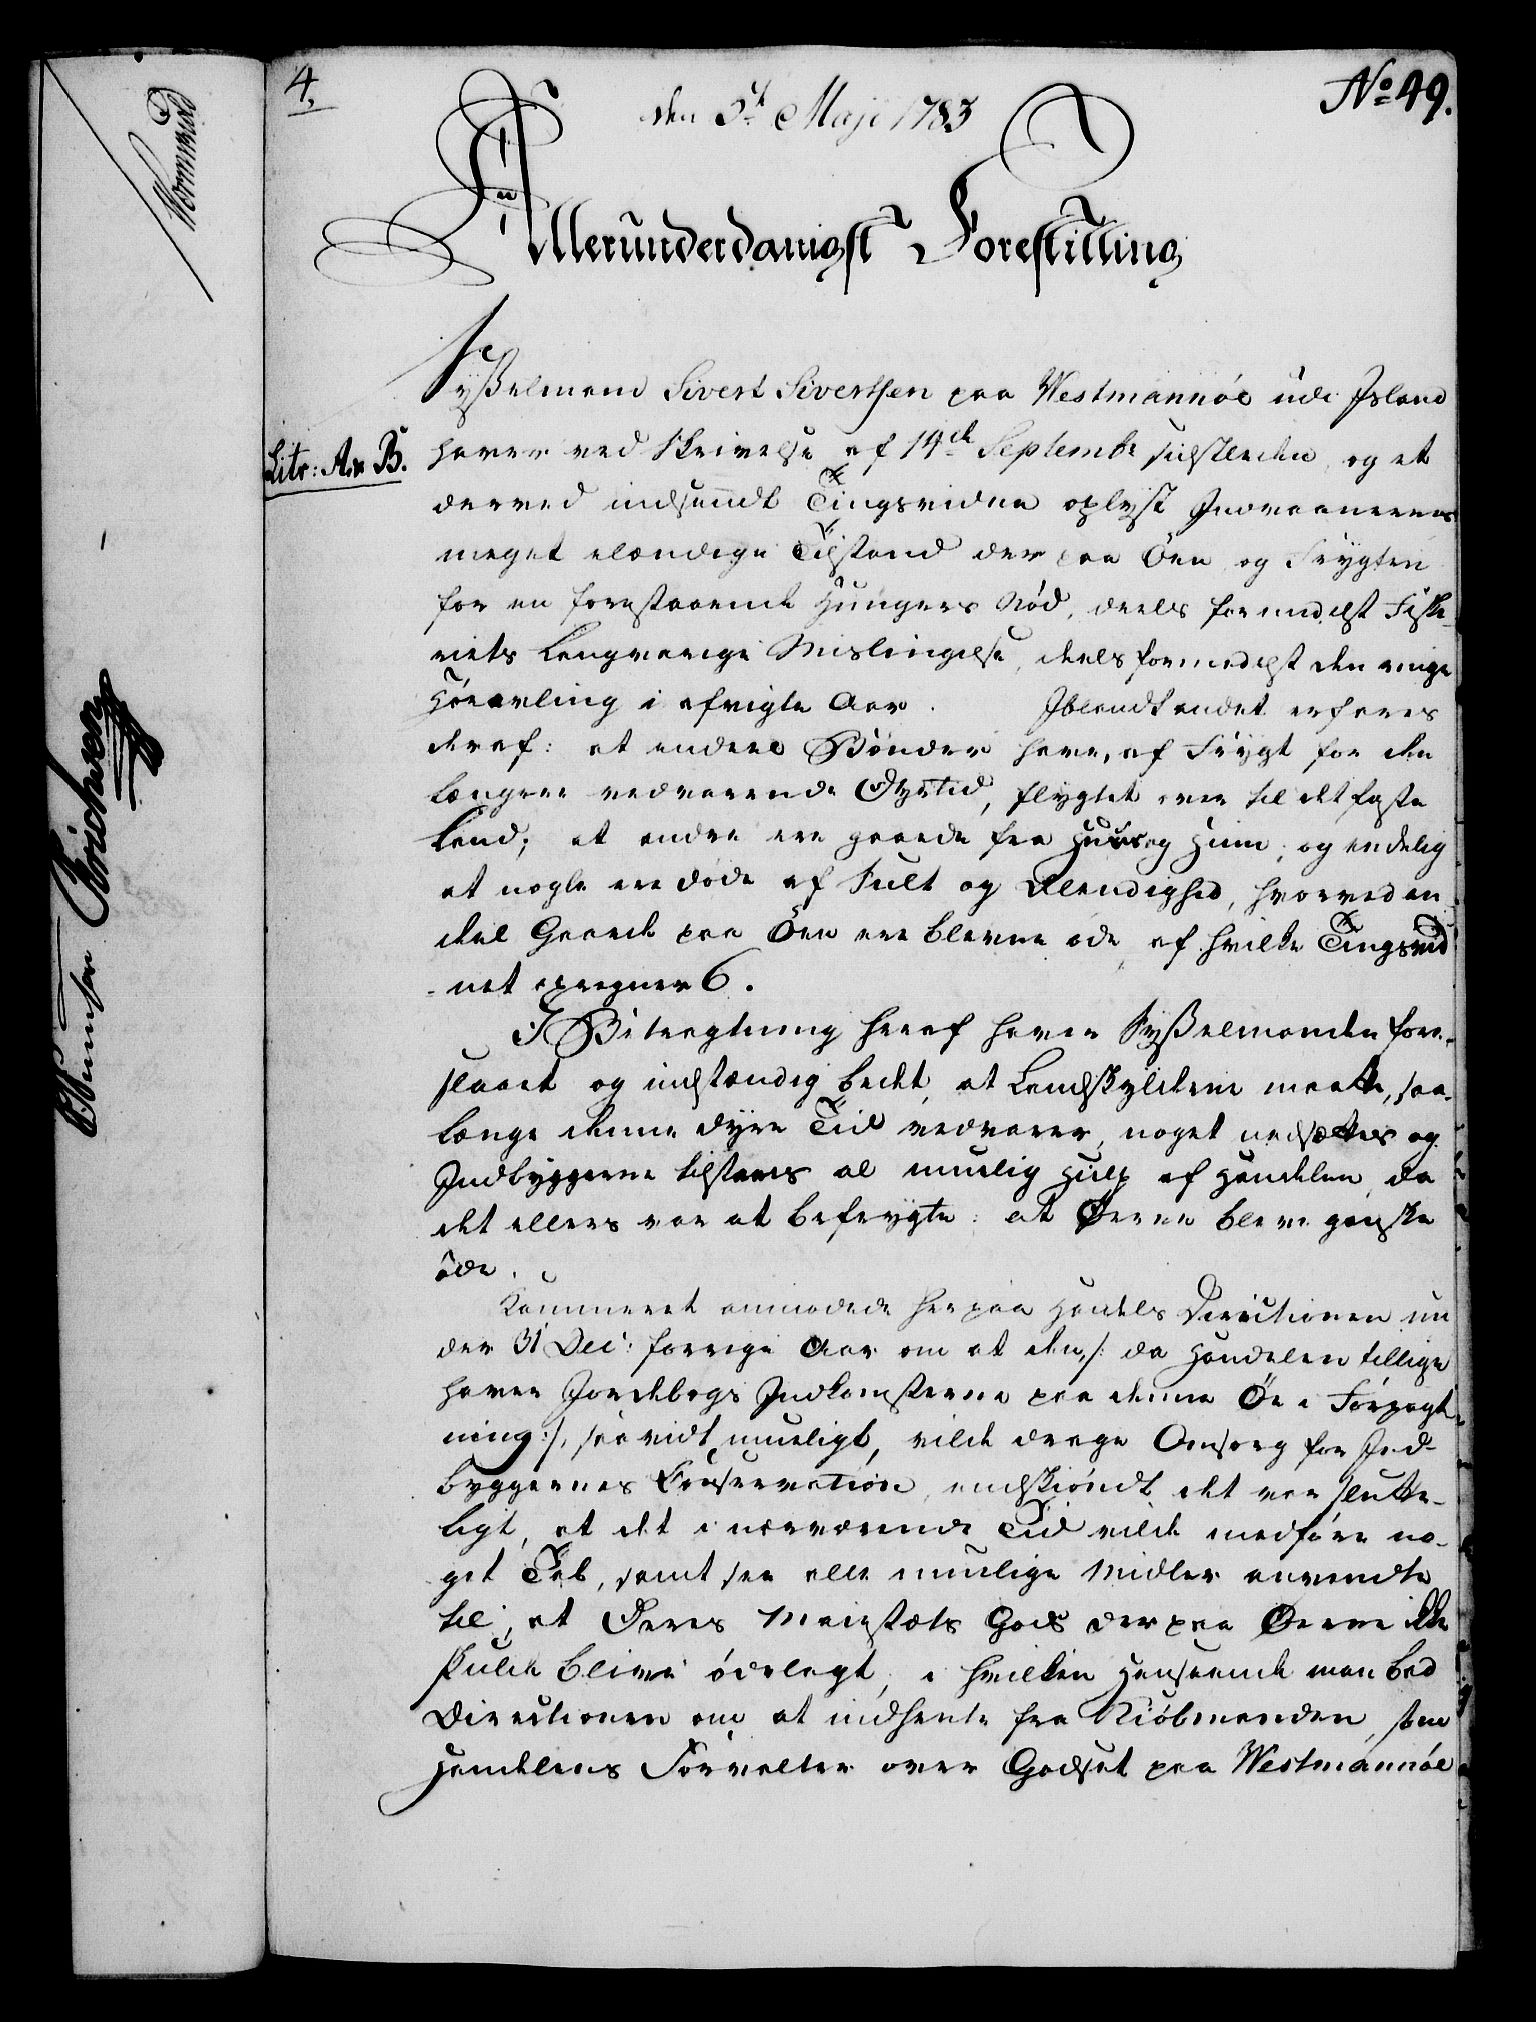 4.
No 49.
den 5t Maji 1783
Allerunderdanigst Forestilling
Sysselmand Sivert Sivertsen paa Westmannöe udi Island
Litr: A. & B.
haver ved Skrivelse af 14de Septembr sidstleden, og et
derved indsendt Tingsvidne oplyst Indvaanernes
meget elændige Tilstand der paa Öen og Frygten
for en forestaaende Hungers Nöd, deels formedelst Fiske-
riets langvarige Mislingelse, deels formedelst den ringe
Höeavling i afvigte Aar. Iblandt andet erfares
deraf: at endeel Bönder have, af Frygt for den
længere vedvarende Dyrtid, flygtet over til det faste
Land; at andre ere gaaede fra Huus og Hiem, og endelig
at nogle ere döde af Sult og Elendighed, hvorved en
deel Gaarde paa Öen ere blevne öde, af hvilke Tingsvid-
net opregner 6.
I Betragtning heraf haver Sysselmanden fore-
slaaet og indstændig bedet, at Landskylden maatte, saa-
længe denne dyre Tid vedvarer, noget nedsættes og
Indbyggerne tilstaaes al muelig Hielp af Handelen, da
det ellers var at befrygte: at Öerne bleve ganske
öde.
Kammeret anmodede herpaa Handels Directionen un
der 31 Dec: forrige Aar om at den, /: da Handelen tillige
haver Jordebogs Indkomsterne paa denne Öe i Forpagt-
ning :/, saavidt mueligt, vilde drage Omsorg for Ind-
byggernes Conservation, endskiöndt det var slutte-
ligt, at det i nærværende Tid vilde medföre no-
get Tab, samt see alle muelige Midler anvendte
til, at Deres Majestæts Gods der paa Öerne ikke
skulde blive ödelagt, i hvilken Henseende man bad
Directionen om at indhente fra Kiöbmanden, som
Handelens Forvalter over Godset paa Westmannöe
Erichsen